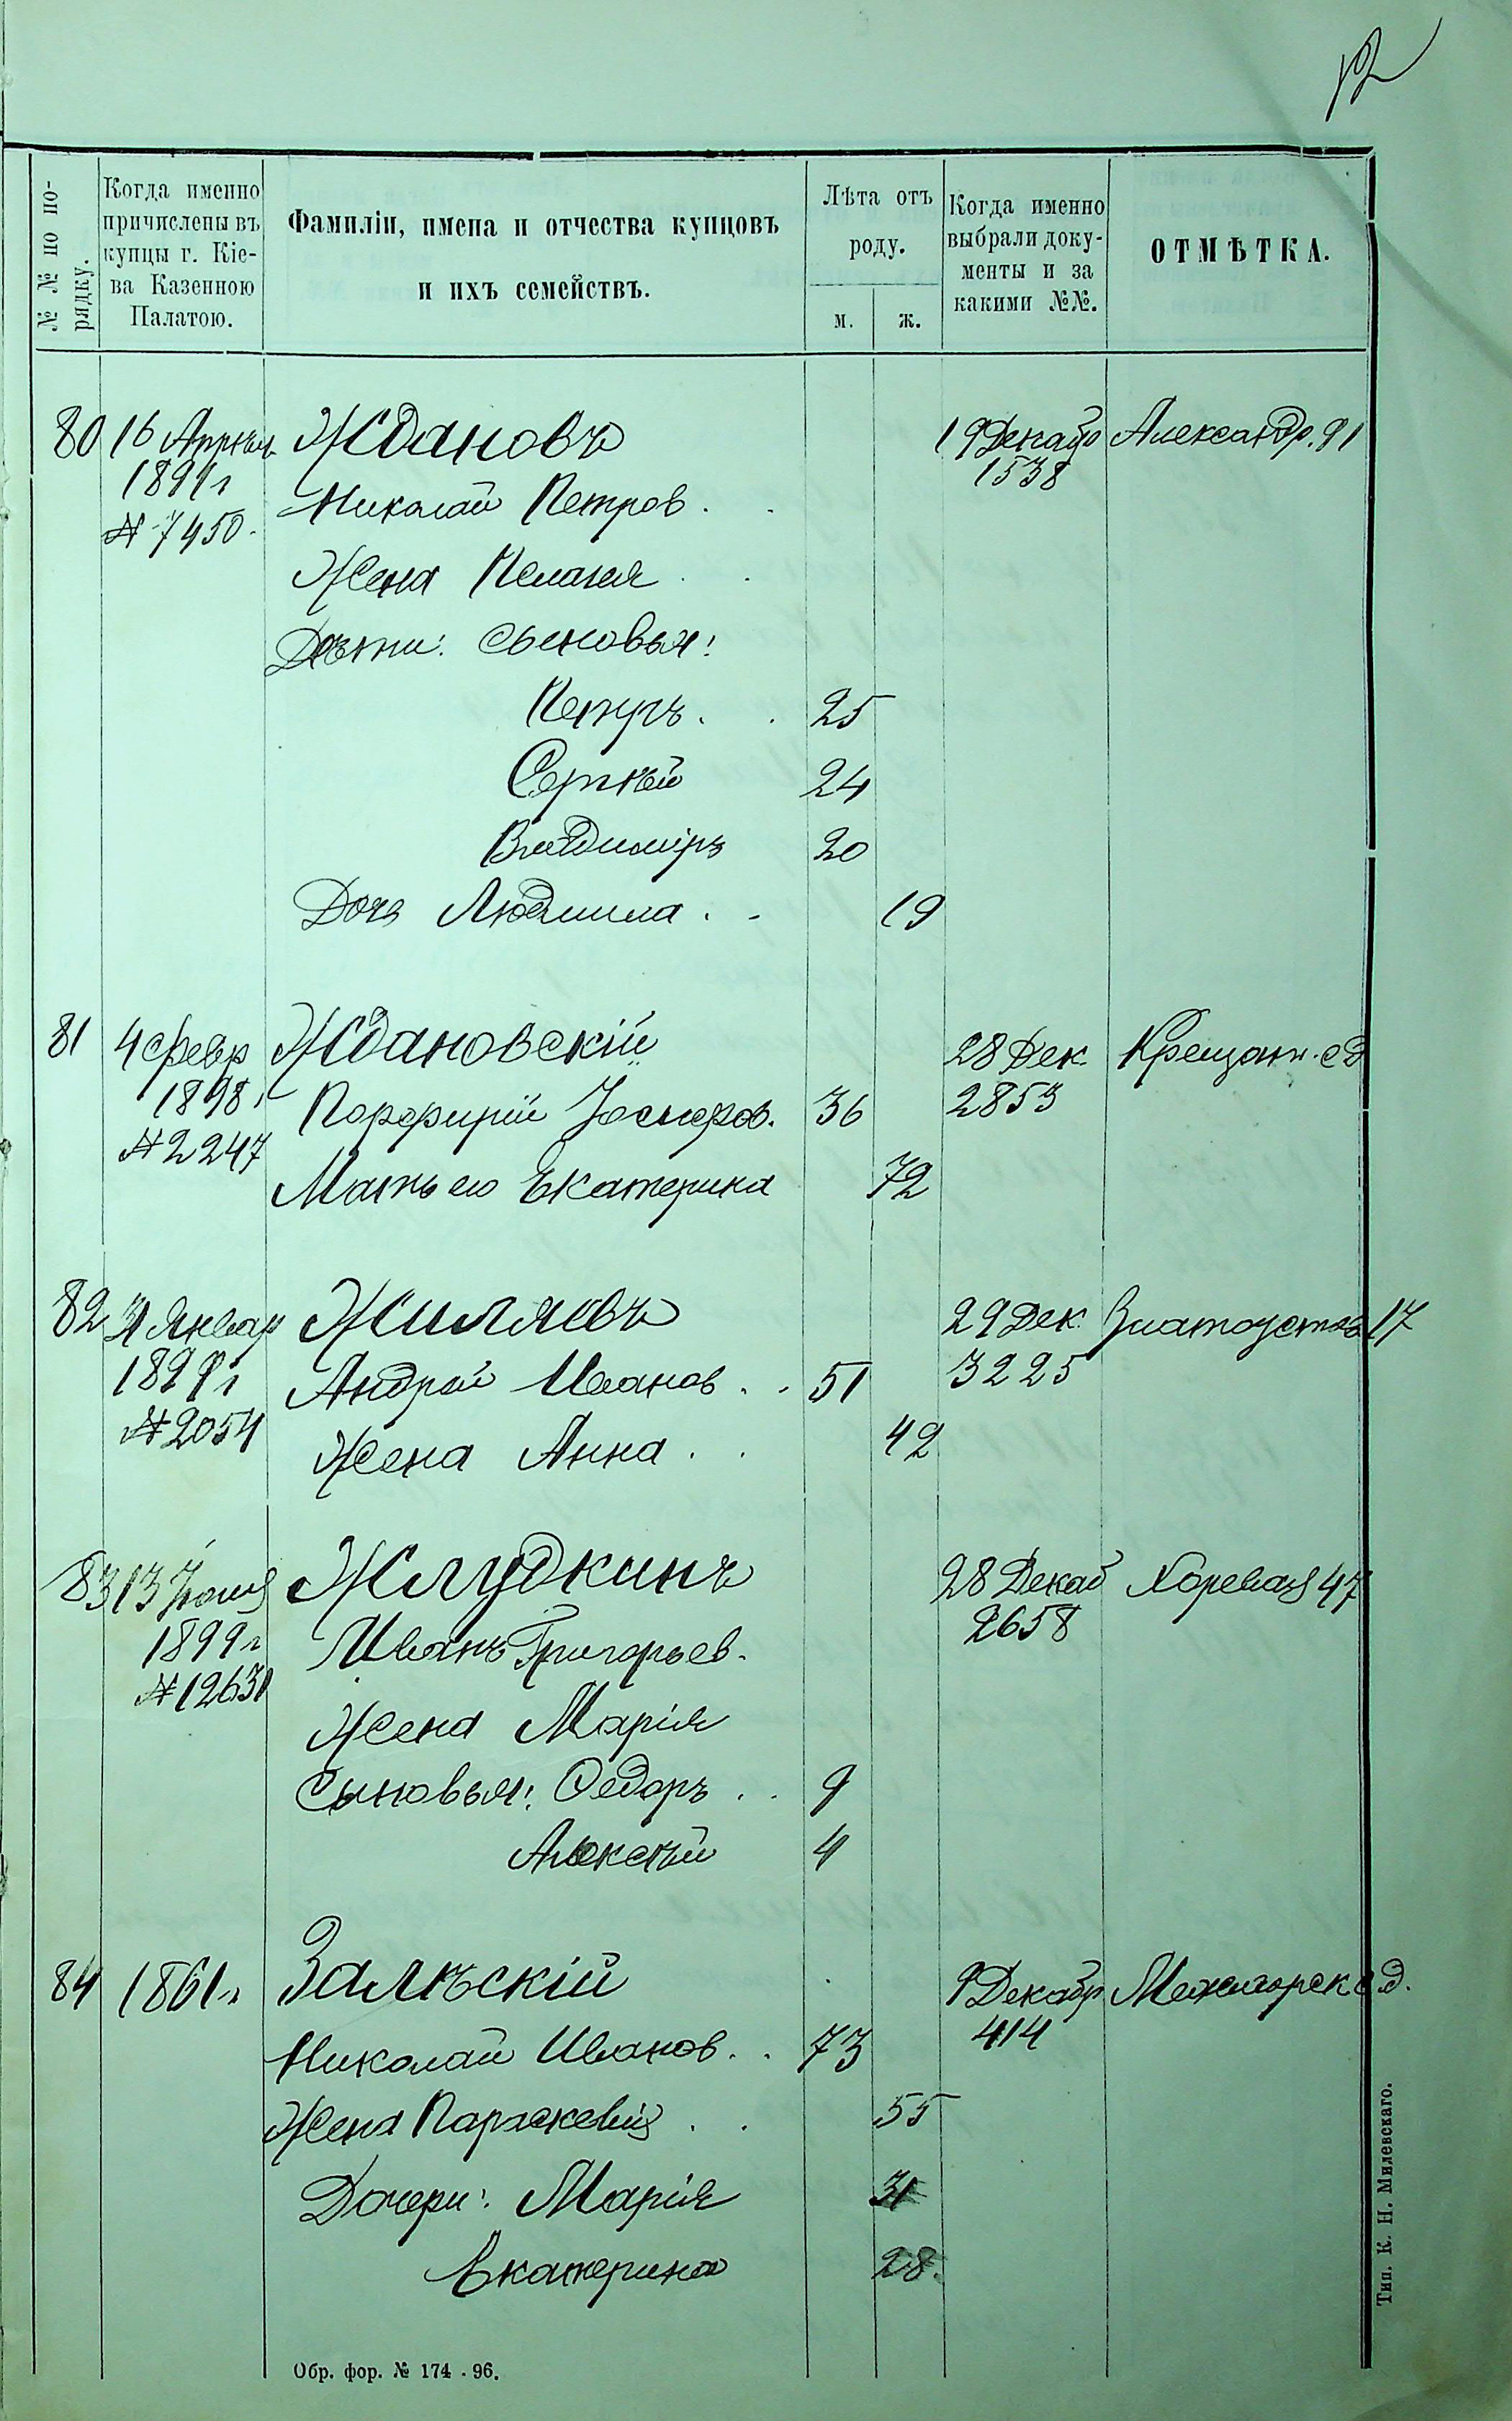 12
№ № по по-
рядку.
Когда именно
причислены въ
купцы г. Кіе-
ва Казенною
Палатою.
Фамиліи, имена и отчества купцовъ
и ихъ семействъ.
Лѣта отъ
роду.
м. ж.
Когда именно
выбрали доку-
менты и за
какими №№.
ОТМѢТКА.
80 16 Апрѣл. Ждановъ 19 Декаб Александр. 91
1891 г 1538
№ 7450 Николай Петров.
Жена Пелагея
Дѣти: сыновья:
Петръ. 25
Сергѣй 24
Владиміръ 20
Дочь Людмила 19
81 4 Февр Ждановскій 28 Дек Крещат. с д
1898 г Порфирій Іосифов. 36 2853
№ 2247
Мать его Екатерина 72
82 31 Январ Жиляевъ 29 Дек. Златоустов 17
189 г Андрей Иванов 51 3225
№ 2054 Жена Анна 42
83 13 Іюня Жлудкинъ 28 Декаб Хоревая 47
1899 г Иванъ Григорьев. 2658
№ 12631
Жена Марія
Сыновья: Ѳедоръ 9
Алексѣй 4
84 1861 г. Залѣскій 9 Декабр Межигорск с д.
414
Николай Иванов 73
Жена Параскевія 55
Дочери: Марія 31
Екатерина 28.
Обр. фор. № 174 - 96.
Тип. К. Н. Милевскаго.